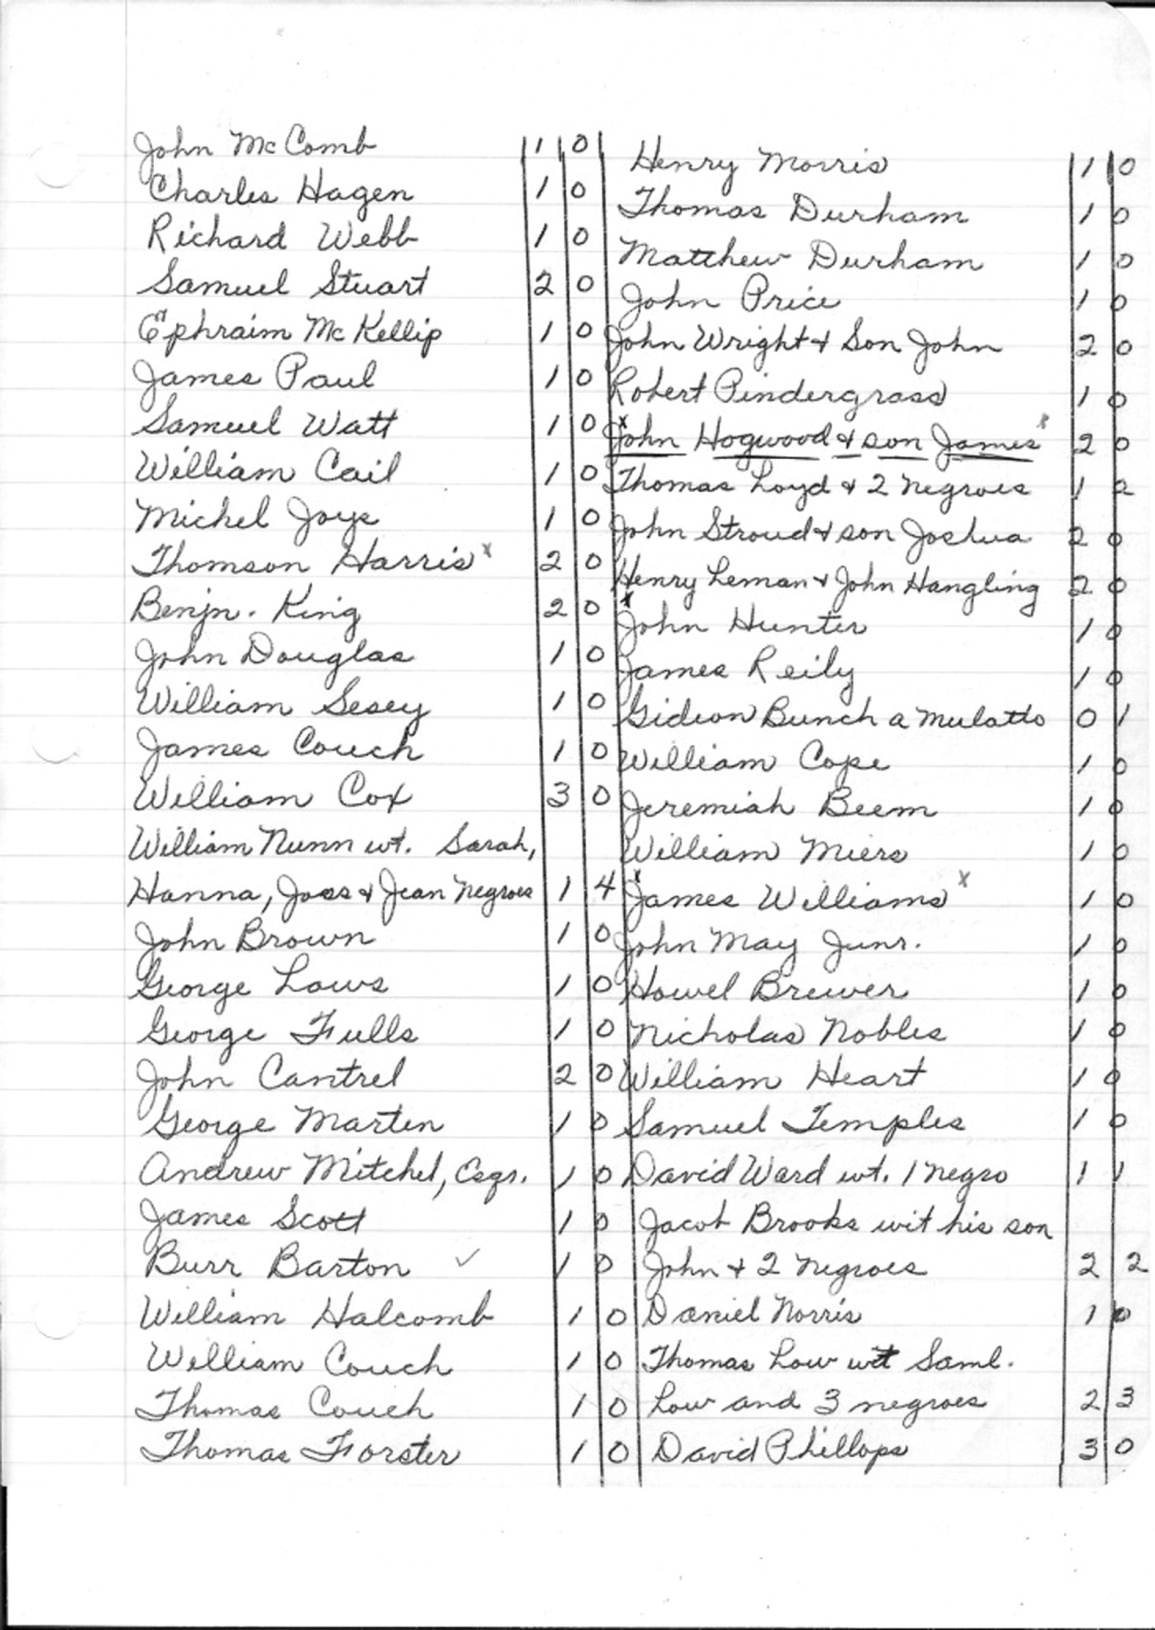 John McComb 1 0
Charles Hagen 1 0
Richard Webb 1 0
Samuel Stuart 2 0
Ephraim McKellip 1 0
James Paul 1 0
Samuel Watt 1 0
William Cail 1 0
Michel Joys 1 0
Thomson Harris x 2 0
Benjn. King 2 0
John Douglas 1 0
William Sesey 1 0
James Couch 1 0
William Cox 3 0
William Nunn wt. Sarah,
Hanna, Joss & Jean Negroes 1 4
John Brown 1 0
George Laws 1 0
George Fulls 1 0
John Cantrel 2 0
George Marten 1 0
Andrew Mitchel, Esqr. 1 0
James Scott 1 0
Burr Barton ✓ 1 0
William Halcomb 1 0
William Couch 1 0
Thomas Couch 1 0
Thomas Forster 1 0
Henry Morris 1 0
Thomas Durham 1 0
Matthew Durham 1 0
John Price 1 0
John Wright & Son John 2 0
Robert Pindergrass 1 0
x John Hogwood & son James x 2 0
Thomas Loyd & 2 Negroes 1 2
John Stroud & son Joshua 2 0
Henry Leman & John Hangling 2 0
x John Hunter 1 0
James Reily 1 0
Gideon Bunch a mulatto 0 1
William Cope 1 0
Jeremiah Beem 1 0
William Miers 1 0
x James Williams x 1 0
John May Junr. 1 0
Howel Brewer 1 0
Nicholas Nobles 1 0
William Heart 1 0
Samuel Temples 1 0
David Ward wt. 1 Negro 1 1
Jacob Brooks wit his son
John & 2 Negroes 2 2
Daniel Norris 1 0
Thomas Low wt Saml.
Low and 3 negroes 2 3
David Phillops 3 0